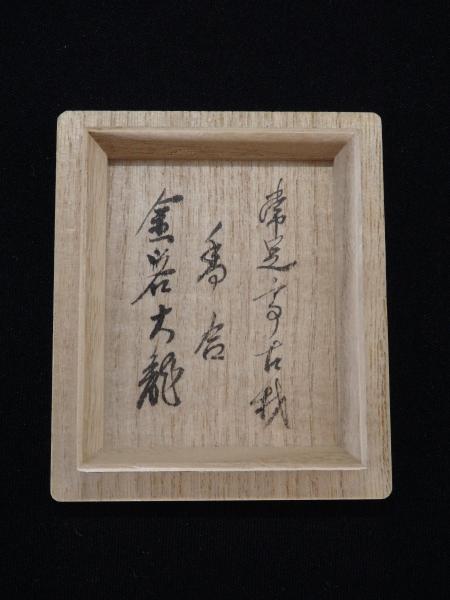 常足亭古材
香合
金岩大龍